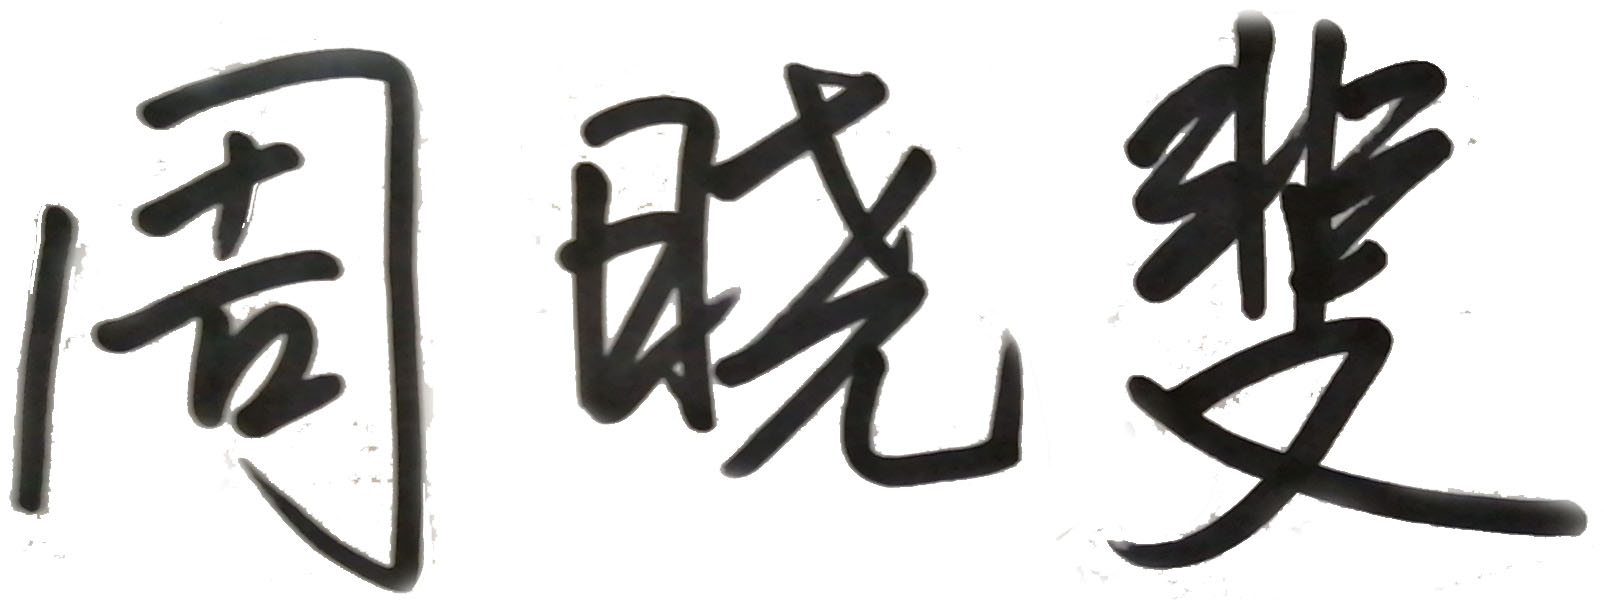 周晓斐